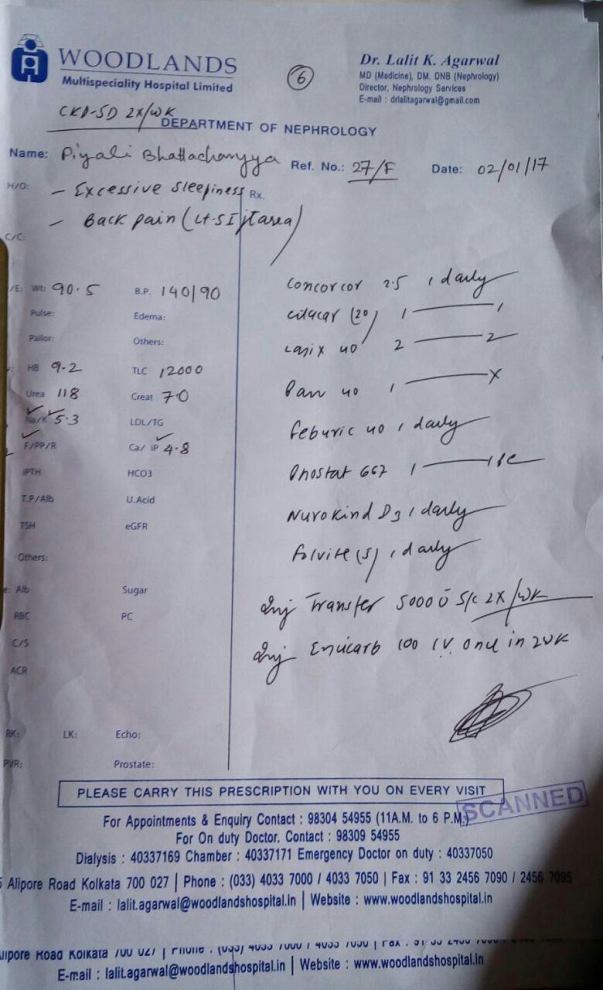 WOODLANDS
Multispeciality Hospital Limited
6
Dr. Lalit K. Agarwal
MD (Medicine), DM, DNB (Nephrology)
Director, Nephrology Services
E-mail : drlalitagarwal@gmail.com
CKD-5D 2X/WK
DEPARTMENT OF NEPHROLOGY
Name: Piyali Bhattacharyya Ref. No.: 27/F Date: 02/01/17
H/O: - Excessive Sleepiness Rx.
- Back pain (Lt. SI jt area)
C/C:
/E: Wt: 90.5 B.P. 140/90
Pulse: Edema:
Pallor: Others:
HB 9.2 TLC 12000
Urea 118 Creat 7.0
Na/K 5.3 LDL/TG
F/PP/R Ca/ iP 4.8
iPTH HCO3
T.P/Alb U.Acid
TSH eGFR
Others:
e: Alb Sugar
RBC PC
C/S
ACR
RK: LK: Echo:
PVR: Prostate:
Concorcor 2.5 1 daily
(20) 1 — 1
Lasix 40 2 — 2
Pan 40 1 — X
Feburic 40 1 daily
Phostat 667 1 —
Nurokind D3 1 daily
Folvite (5) 1 daily
Inj Transfer 5000 U S/C 2X/WK
Inj 100 IV once in 2WK
PLEASE CARRY THIS PRESCRIPTION WITH YOU ON EVERY VISIT
SCANNED
For Appointments & Enquiry Contact : 98304 54955 (11A.M. to 6 P.M.)
For On duty Doctor. Contact : 98309 54955
Dialysis : 40337169 Chamber : 40337171 Emergency Doctor on duty : 40337050
5 Alipore Road Kolkata 700 027 | Phone : (033) 4033 7000 / 4033 7050 | Fax : 91 33 2456 7090 / 2456 7095
E-mail : lalit.agarwal@woodlandshospital.in | Website : www.woodlandshospital.in
lipore Road Kolkata 700 027 | Phone : (033) 4033 7000 / 4033 7050 | Fax : 91 33 2456
E-mail : lalit.agarwal@woodlandshospital.in | Website : www.woodlandshospital.in